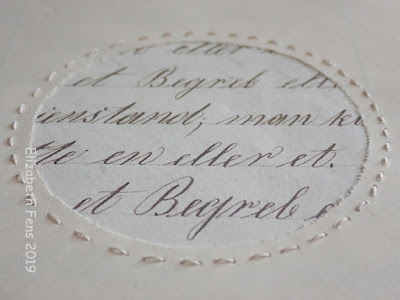 eller
et Begreb elle
instand; man k
te en eller et.
et Begreb e
Elizabeth Fens 2019